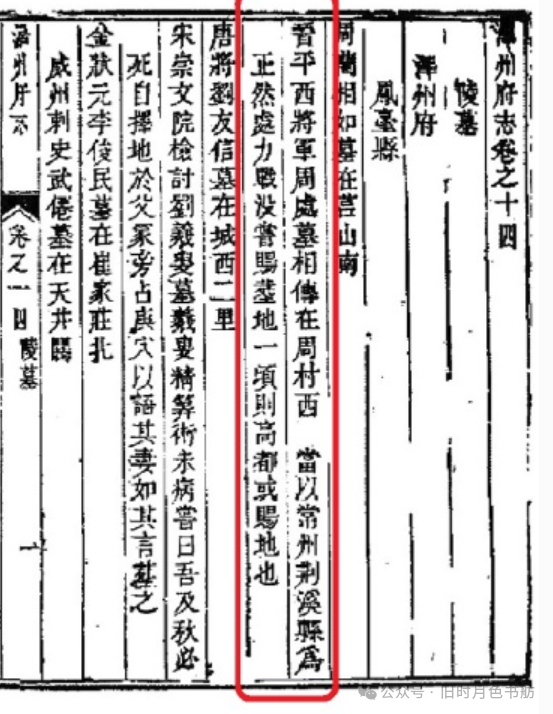 澤州府志卷之十四
陵墓
澤州府
鳳臺縣
周藺相如墓在莒山南
晉平西將軍周處墓相傳在周村西 當以常州荆溪縣爲
正然處力戰没嘗賜塟地一頃則高都或賜地也
唐將劉友信墓在城西二里
宋崇文院檢討劉羲叟墓羲叟精算術未病嘗曰吾及秋必
死自擇地於父冢旁占庚穴以語其妻如其言塟之
金狀元李俊民墓在崔家莊北
威州刺史武僊墓在天井關
澤州府志 卷之十四 陵墓 一
公众号 · 旧时月色书舫